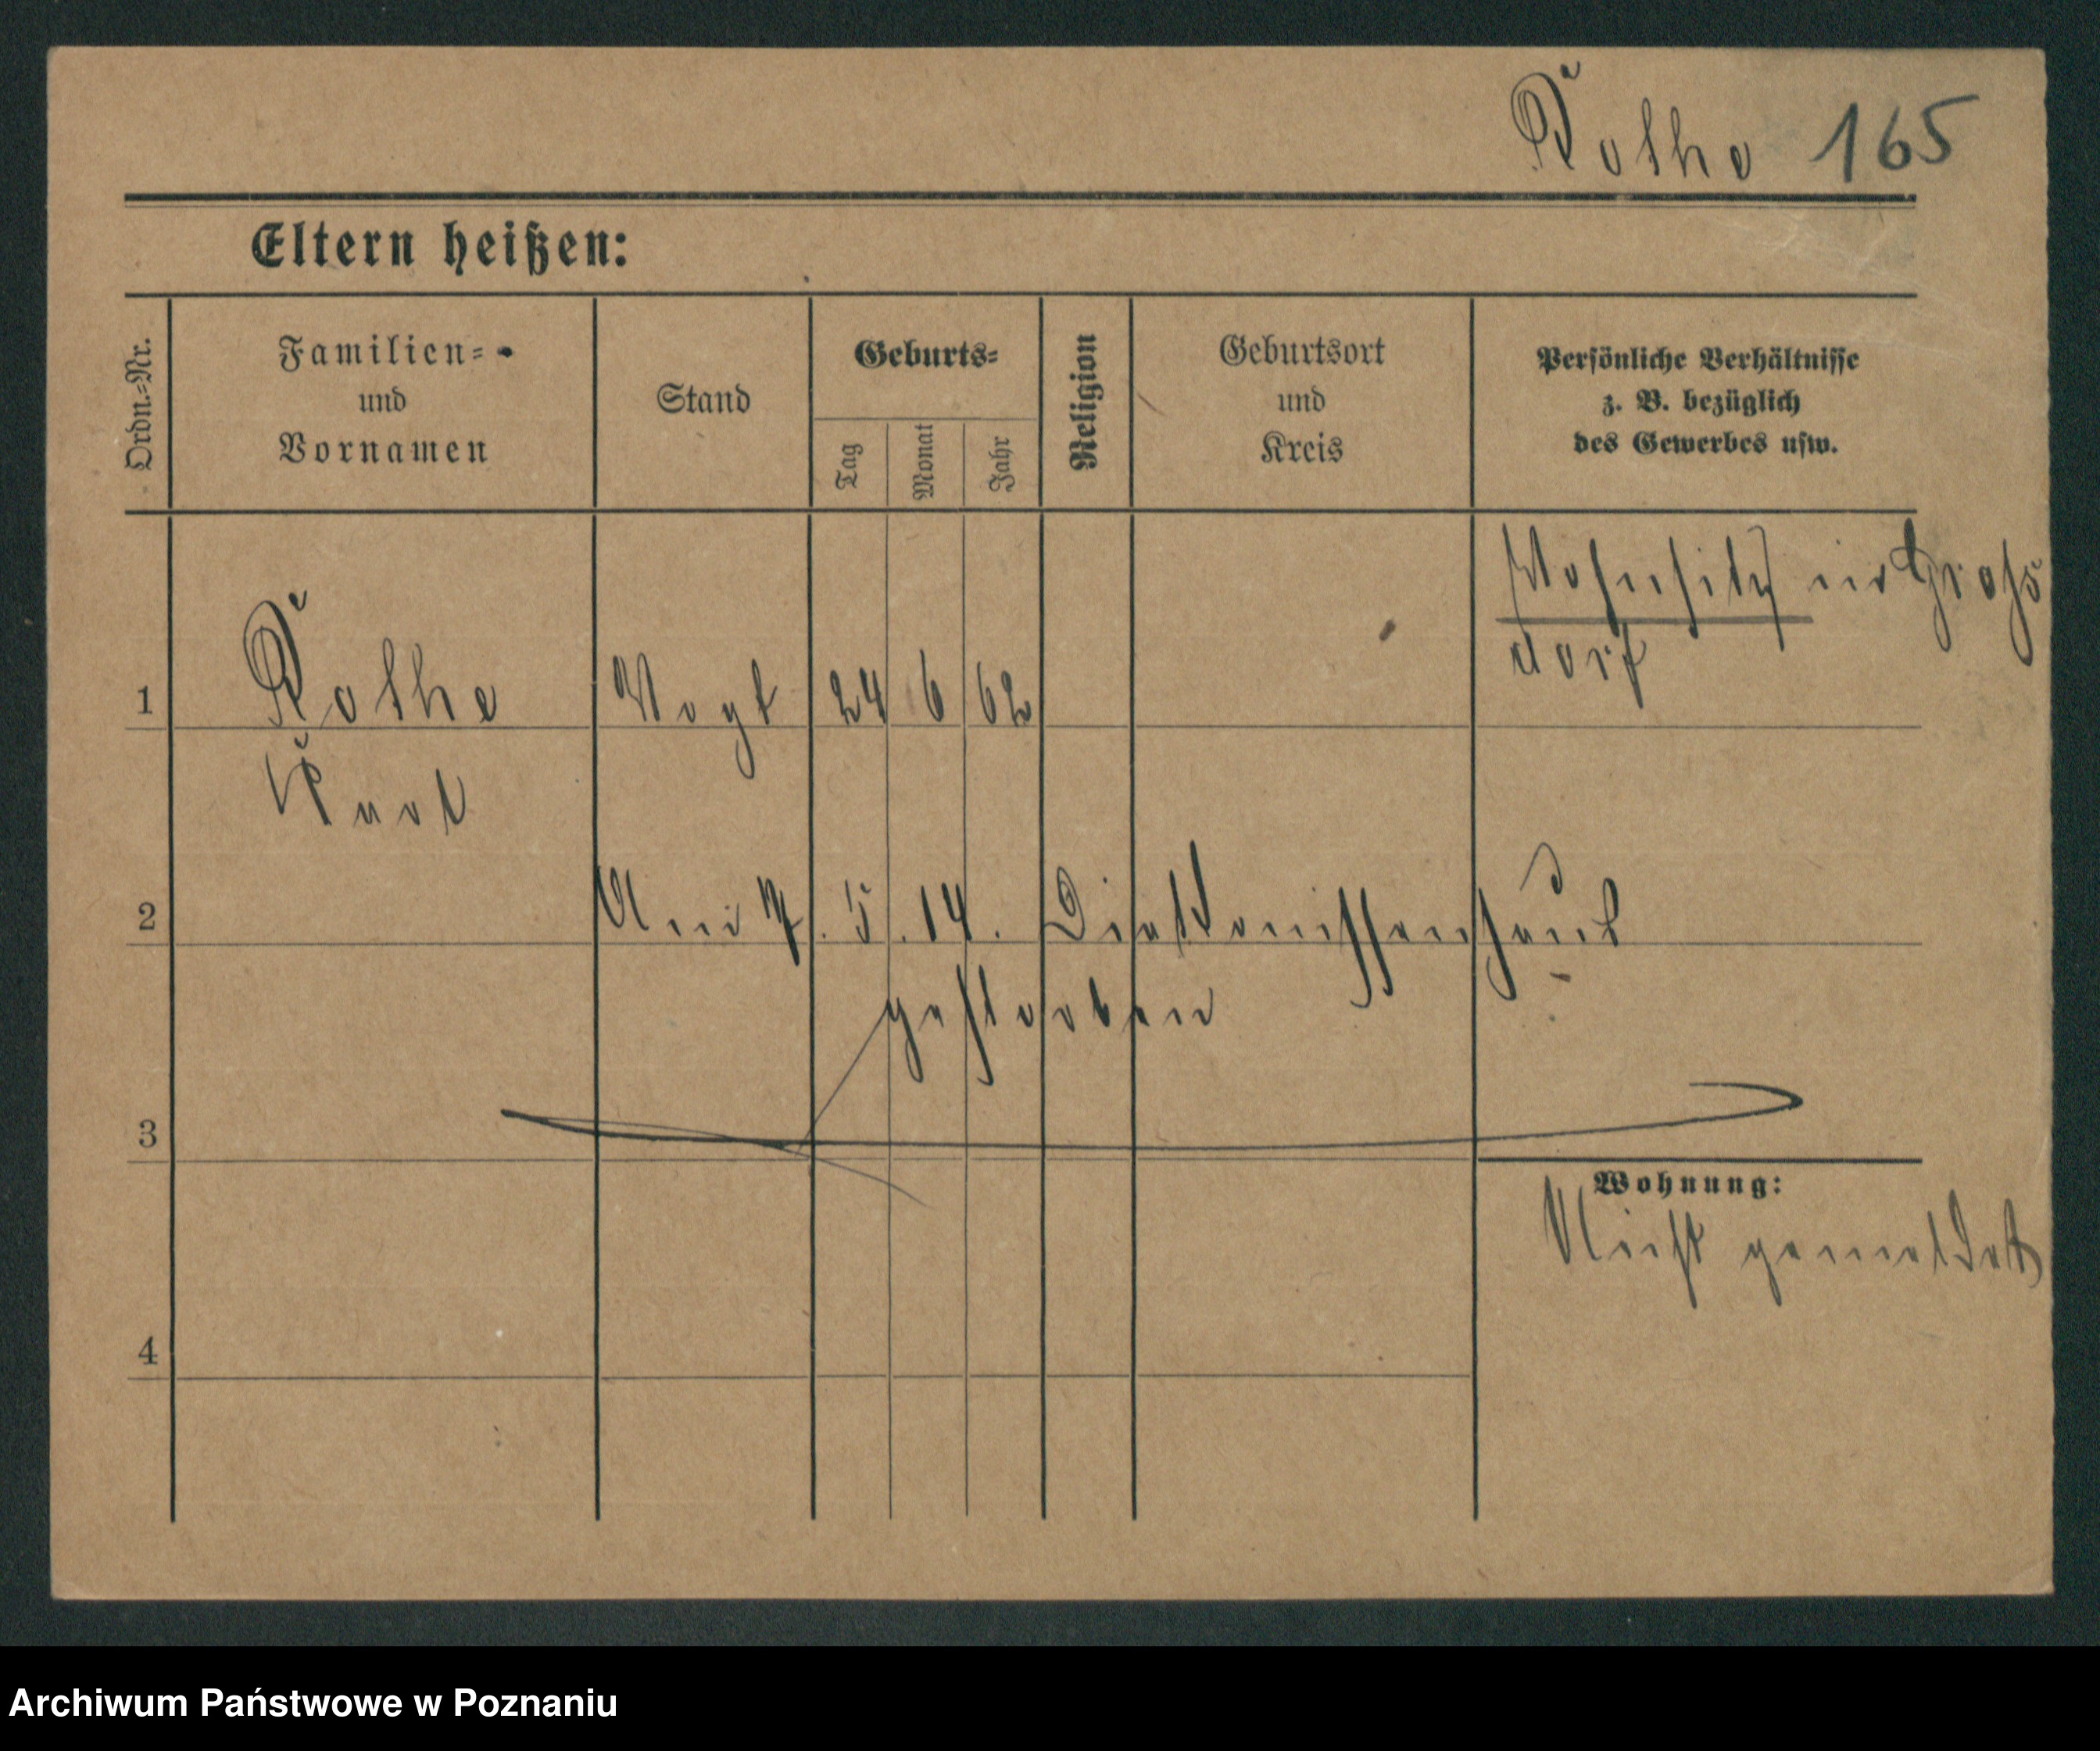 Rothe 165
Eltern heißen:
Ordn.=Nr.
Familien=
und
Vornamen
Stand
Geburts=
Tag
Monat
Jahr
Religion
Geburtsort
und
Kreis
Persönliche Verhältnisse
z. B. bezüglich
des Gewerbes usw.
Wohnsitz in Gross
dorf
1 Rothe Vogt 24 6 62
Karl
2 Am 7. 5. 14. Diakonissenhaus
gestorben
3
Wohnung:
Nicht gemeldet
4
Archiwum Państwowe w Poznaniu